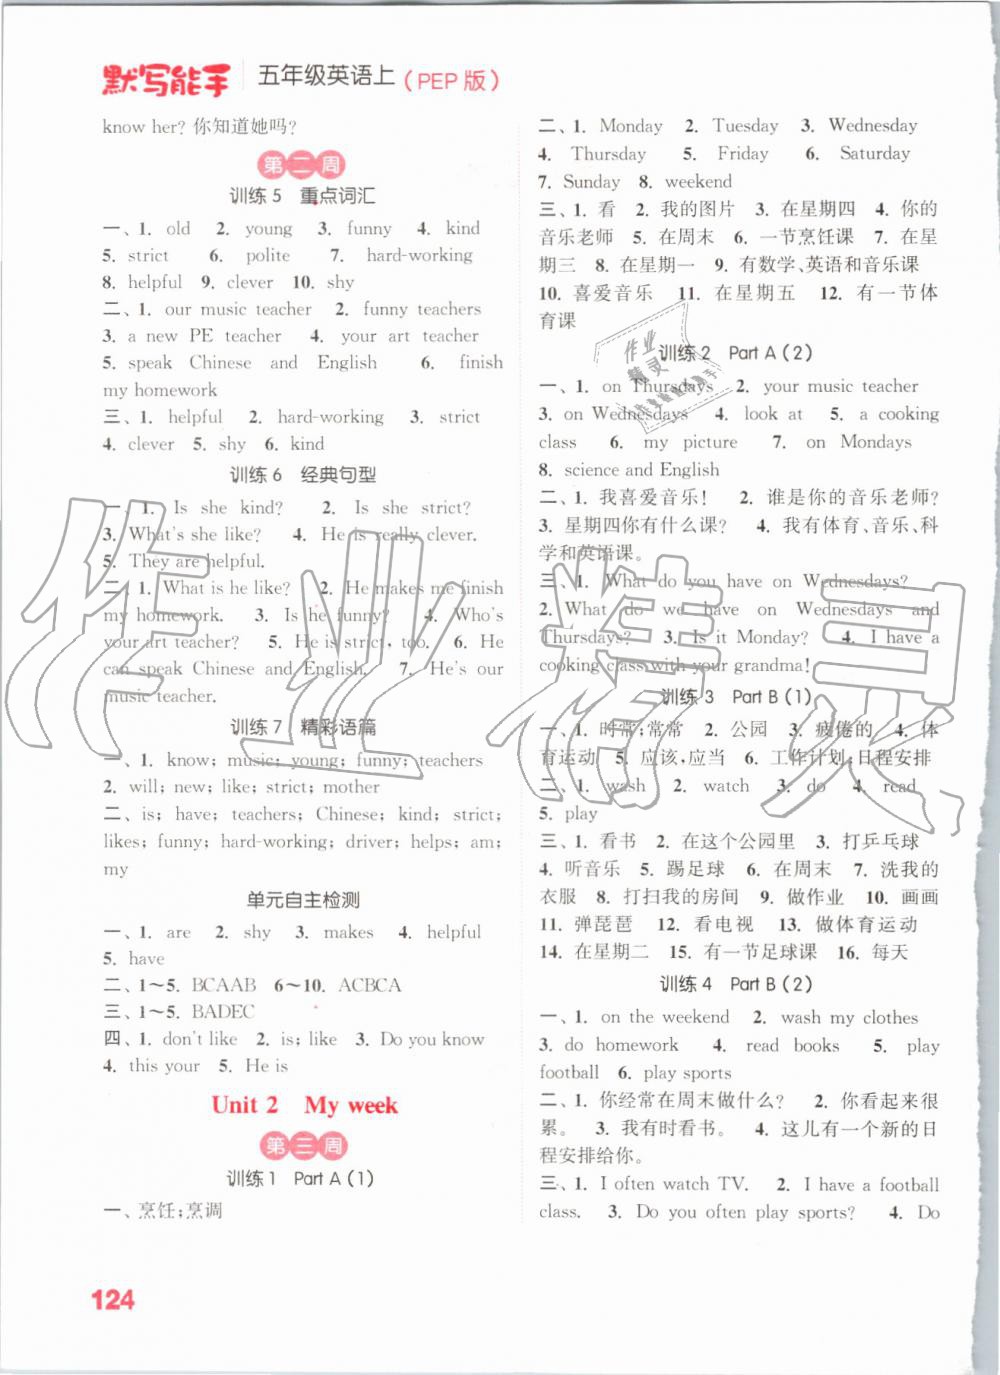 默写能手 五年级英语上(PEP 版)
know her? 你知道她吗?
第二周
训练5 重点词汇
一、1. old 2. young 3. funny 4. kind
5. strict 6. polite 7. hard-working
8. helpful 9. clever 10. shy
二、1. our music teacher 2. funny teachers
3. a new PE teacher 4. your art teacher
5. speak Chinese and English 6. finish
my homework
三、1. helpful 2. hard-working 3. strict
4. clever 5. shy 6. kind
训练6 经典句型
一、1. Is she kind? 2. Is she strict?
3. What's she like? 4. He is really clever.
5. They are helpful.
二、1. What is he like? 2. He makes me finish
my homework. 3. Is he funny? 4. Who's
your art teacher? 5. He is strict, too. 6. He
can speak Chinese and English. 7. He's our
music teacher.
训练7 精彩语篇
一、1. know; music; young; funny; teachers
2. will; new; like; strict; mother
二、is; have; teachers; Chinese; kind; strict;
likes; funny; hard-working; driver; helps; am;
my
单元自主检测
一、1. are 2. shy 3. makes 4. helpful
5. have
二、1～5. BCAAB 6～10. ACBCA
三、1～5. BADEC
四、1. don't like 2. is; like 3. Do you know
4. this your 5. He is
Unit 2 My week
第三周
训练1 Part A(1)
一、烹饪;烹调
124
二、1. Monday 2. Tuesday 3. Wednesday
4. Thursday 5. Friday 6. Saturday
7. Sunday 8. weekend
三、1. 看 2. 我的图片 3. 在星期四 4. 你的
音乐老师 5. 在周末 6. 一节烹饪课 7. 在星
期三 8. 在星期一 9. 有数学、英语和音乐课
10. 喜爱音乐 11. 在星期五 12. 有一节体
育课
训练2 Part A(2)
一、1. on Thursdays 2. your music teacher
3. on Wednesdays 4. look at 5. a cooking
class 6. my picture 7. on Mondays
8. science and English
二、1. 我喜爱音乐! 2. 谁是你的音乐老师?
3. 星期四你有什么课? 4. 我有体育、音乐、科
学和英语课。
三、1. What do you have on Wednesdays?
2. What do we have on Wednesdays and
Thursdays? 3. Is it Monday? 4. I have a
cooking class with your grandma!
训练3 Part B(1)
一、1. 时常;常常 2. 公园 3. 疲倦的 4. 体
育运动 5. 应该,应当 6. 工作计划;日程安排
二、1. wash 2. watch 3. do 4. read
5. play
三、1. 看书 2. 在这个公园里 3. 打乒乓球
4. 听音乐 5. 踢足球 6. 在周末 7. 洗我的
衣服 8. 打扫我的房间 9. 做作业 10. 画画
11. 弹琵琶 12. 看电视 13. 做体育运动
14. 在星期二 15. 有一节足球课 16. 每天
训练4 Part B(2)
一、1. on the weekend 2. wash my clothes
3. do homework 4. read books 5. play
football 6. play sports
二、1. 你经常在周末做什么? 2. 你看起来很
累。 3. 我有时看书。 4. 这儿有一个新的日
程安排给你。
三、1. I often watch TV. 2. I have a football
class. 3. Do you often play sports? 4. Do
作业精灵
作业
精灵